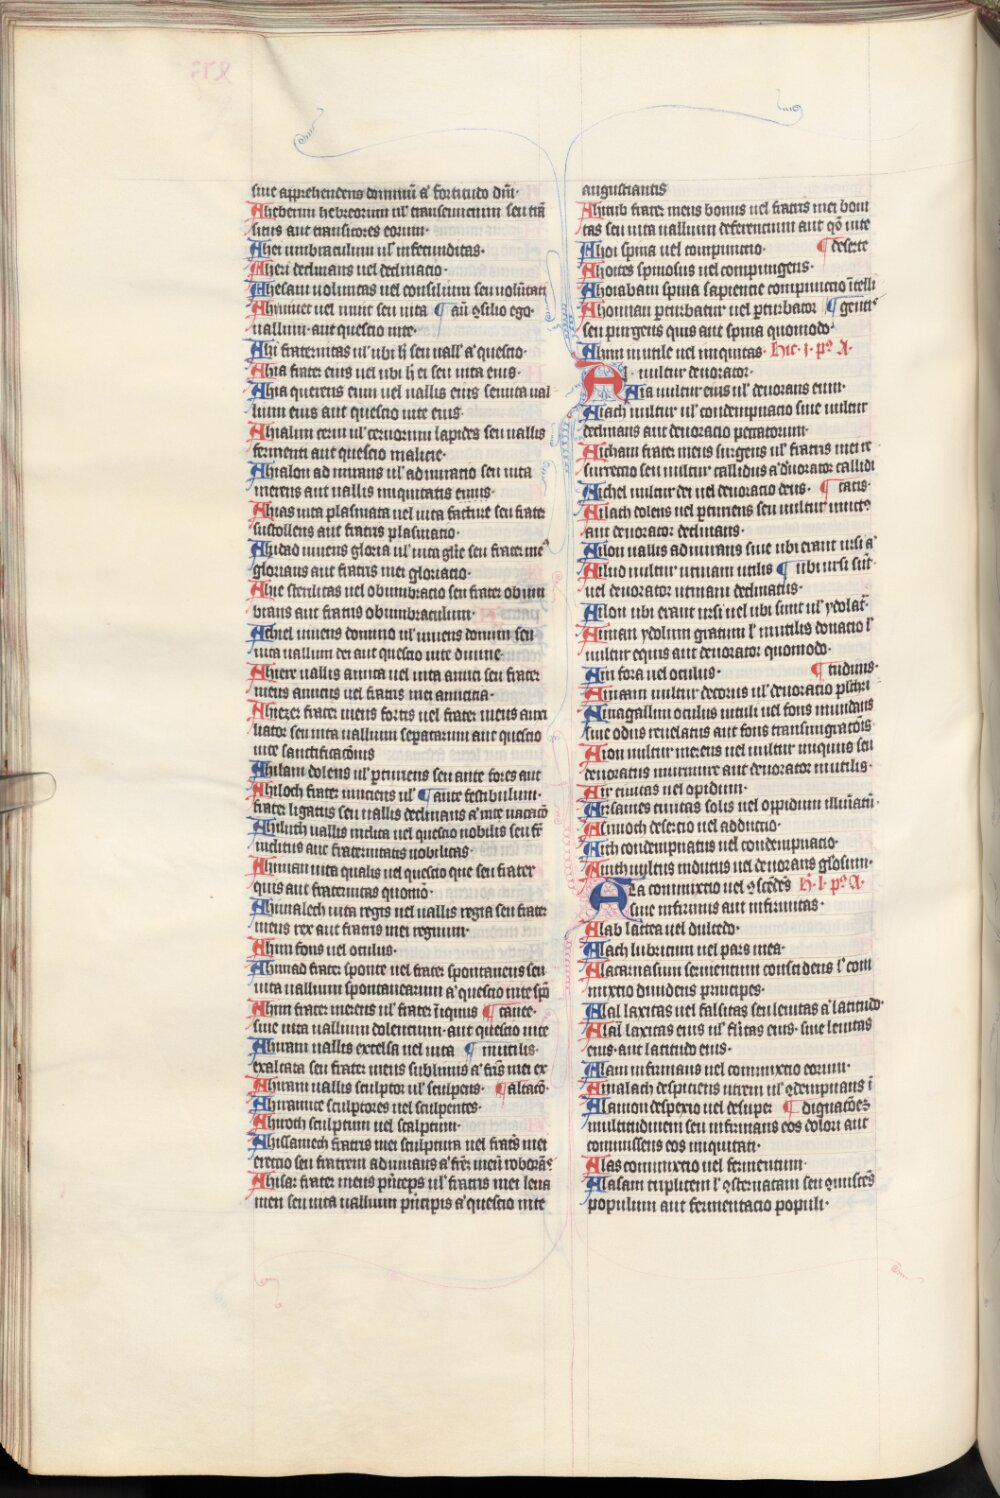 siue apprehendens dominiū a' fortitudo dn̄i·
Aheberim hebreorum ul' transeuncium seu trā
situs aut transitores eorum·
Ahei umbraculum ul' infecunditas·
Aheri declinans uel declinacio·
Ahesam uoluntas uel consilium seu uolūtati
Ahyuinet uel nutic seu uita ¶ aū 9silio ego·
uallium aut questio uite·
Ahi fraternitas ul' ubi h̄ seu uall' a' questio·
Ahia frater eius uel ubi h̄ ei seu uita eius·
Ahia querens eum uel uallis eius seu uita ual
lium eius aut questio uite eius·
Ahialim cerui ul' ceruorum lapides seu uallis
fermenti aut questio malicie·
Ahialon ad mirans ul' ad miracio seu uita
merens aut uallis iniquitatis eiuus·
Ahias uita plasmata uel uita facture seu frater
sustollens aut fratris plasmacio·
Ahidad uiuens gloria ul' uita gl̄ie seu frater me9
glorians aut fratris mei gloriacio·
Ahie sterilitas uel obumbracio seu frater obum
brans aut fratris obumbraculum·
Achiel uiuens domino ul' uiuens domini seu
uita uallium dei aut questio uite diuine·
Ahiere uallis amica uel uita amici seu frater
meus amicus uel fratris mei amicicia·
Ahiezer frater meus fortis uel frater meus auxi
liator seu uita uallium separatarum aut questio
uite sanctificacōnis
Ahilam dolens ul' ꝑtiniens seu ante fores aut
Ahiloch frater uinciens ul' ¶ ante festibulum·
frater ligatus seu uallis declinans a' uite uacacō
Ahiluth uallis inclita uel questio nobilis seu fr̄
inclitus aut fraternitatis nobilitas·
Ahiman uita qualis uel questio que seu frater
quis aut fraternitas quomō·
Ahimalech uita regis uel uallis regia seu frater
meus rex aut fratris mei regnum·
Ahim fons uel oculus·
Ahinnad frater sponte uel frater spontaneus seu
uita uallium spontanearum a' questio uite spō
Ahim frater merens ul' frater īiquus ¶ tanee·
siue uita uallium dolencium· aut questio uite
Ahiram uallis excelsa uel uita ¶ inutilis·
exaltata seu frater meus sublimis a' fr̄is mei ex
Ahiram uallis sculptor ul' sculpens· ¶ altacō·
Ahiramite sculptores uel sculpentes·
Ahiroth sculptum uel scalptim·
Ahissamech fratris mei sculptura uel frat̄s mei
erectio seu fratrem adiuuans a' fr̄e meū roborās·
Ahisar frater meus pn̄ceps ul' fratris mei leua
men seu uita uallium pn̄cipis a' questio uite
angustiantis
Ahitub frater meus bonus uel fratris mei boni
tas seu uita uallium deferencium aut qō uite
Ahoi spina uel compunctio· ¶ deserte
Ahoites spinosus uel compungens·
Ahorabam spina sapiencie compunctio ītelli
Ahoman ꝑturbatur uel ꝑturbator ¶ gencie
seu pungens quis aut spina quomodo·
Ahun inutile uel iniquitas· Hic· i· p9 A·
Ai· uultur deuorator·
Aia uultur eius ul' deuorans eum·
Aiach uultur ul' condempnacio siue uultur
declinans aut deuoracio peccatorum·
Aicham frater meus surgens ul' fratris mei re
surrectio seu uultur callidus a' deuorator callidi
Aichel uultur dei uel deuoracio deus· ¶ tatis·
Ailach dolens uel ꝑtinens seu uultur uirtute
aut deuorator declinans·
Ailon uallis ad mirans siue ubi erant ursi a'
Ailud uultur utinam utilis ¶ ubi ursi sūt·
uel deuorator utinam declinatus·
Ailon ubi erant ursi uel ubi sunt ul' ydolat·
Aiman ydolum gratum l' inutilis donacio l'
uultur equis aut deuorator quomodo·
Ain fora uel oculus· ¶ tudinis·
Ainam uultur decorus ul' deuoracio plchri
Ainagallim oculus uituli uel fons mundans
siue odus reuelatus aut fons transmigracōis
Aion uultur merens uel uultur iniquus seu
deuoratus murmure aut deuorator inutilis·
Air ciuitas uel opidum·
Airsames ciuitas solis uel oppidum illuīatū·
Aisinoch desercio uel adductio·
Aith condempnatus uel condempnacio·
Aiuth uultus inductus uel deuorans glosum·
Ala commixtio uel 9scēdēs H· l· p9 A·
siue infirmus aut infirmitas·
Alab lactea uel dulcedo·
Alach lubricum uel pars mea·
Alacarnasium sementium considens l' com
mixtio diuidens principes·
Alal laxitas uel falsitas seu leuitas a' latitudo·
Alal laxitas eius ul' fl̄itas eius· siue leuitas
eius· aut latitudo eius·
Alam infirmans uel commixtio eorum·
Amalach despiciens utrem ul' 9dempnans ī
Alamon despexio uel desuper ¶ dignacōes
multitudinem seu infirmans eos dolori aut
commissens eos iniquitati·
Alas commixtio uel fermentum·
Alasam triplicem l' 9sternatam seu 9miscēs
populum aut fermentacio populi·